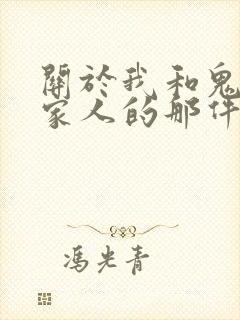 關於我和鬼
家人的那件
馮光青